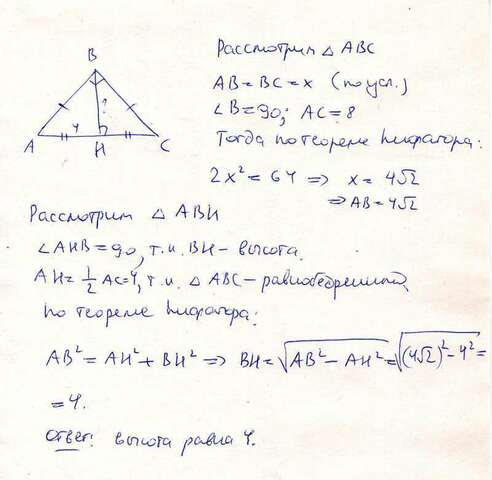 B
?
4
A
H
C
Рассмотрим △ ABC
AB = BC = x (по усл.)
∠B = 90; AC = 8
Тогда по теореме Пифагора:
2x² = 64 ⇒ x = 4√2
⇒ AB = 4√2
Рассмотрим △ ABH
∠AHB = 90, т.к. BH – высота.
AH = 1/2 AC = 4, т.к. △ ABC – равнобедренный
По теореме Пифагора:
AB² = AH² + BH² ⇒ BH = √(AB² – AH²) = √((4√2)² – 4²) =
= 4.
Ответ: высота равна 4.